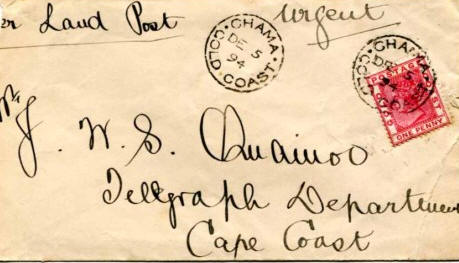 er Land Post
Urgent
CHAMA
DE 5
94
GOLD COAST
CHAMA
DE 5
94
GOLD
POSTAGE
ONE PENNY
Mr
J. W. S. Quainoo
Tellgraph Department
Cape Coast